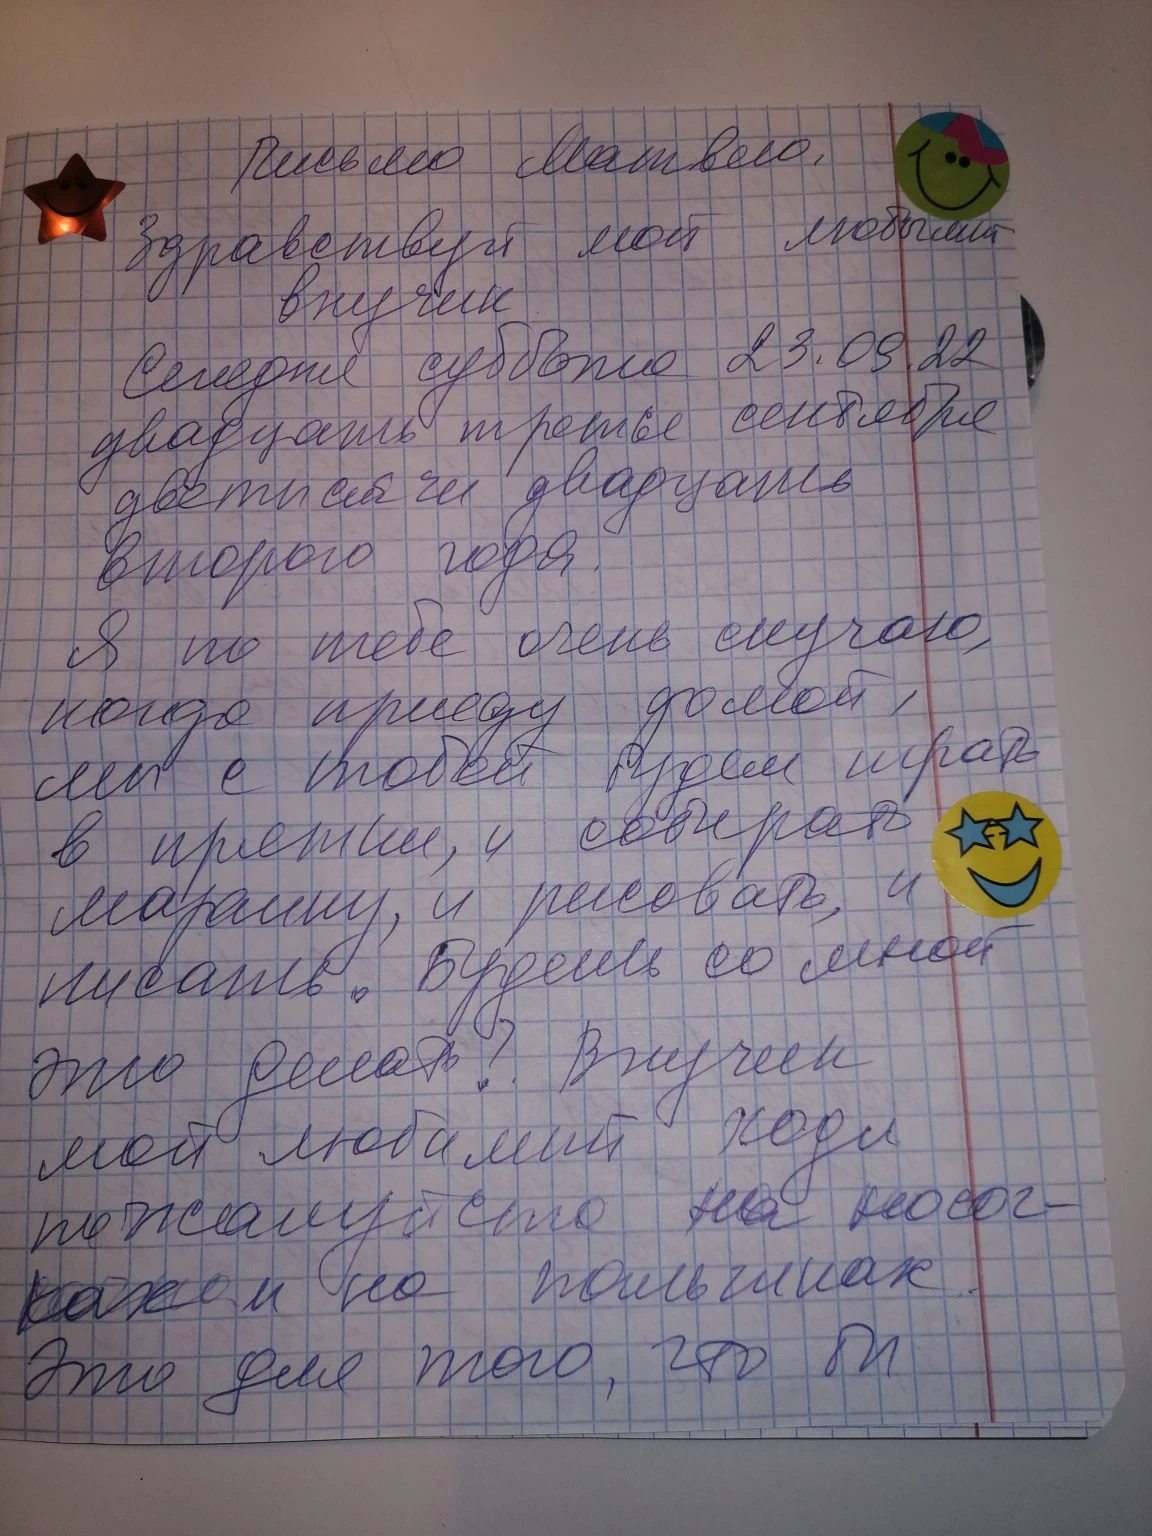 Письмо Матвею.
Здравствуй мой любимый
внучик
Сегодня суббота 23.09.22
двадцать третье сентября
дветысячи двадцать
второго года.
Я по тебе очень скучаю,
когда приеду домой,
мы с тобой будем играть
в прятки, и собирать
машину, и рисовать, и
писать. Будешь со мной
это делать? Внучик
мой любимый ходи
пожалуйста на носоч-
ках и на пальчиках.
Это для того, что бы